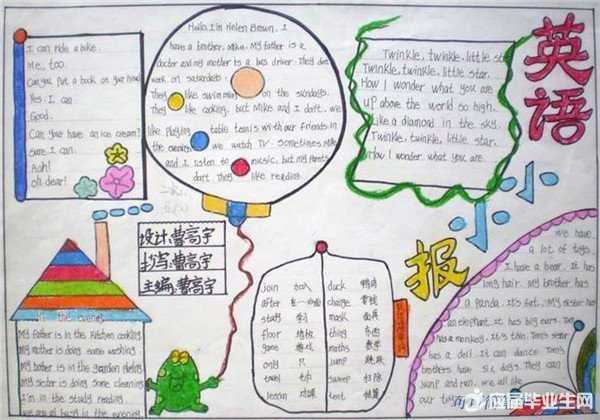 I can ride a bike.
Me, too.
Can you put a book on your head
Yes. I can
Good.
Can you have an ice cream?
Sure. I can
Aah!
Oh dear!
Hello, I'm Helen Brown. I
have a brother, Mike. My father is a
doctor and my mother is a bus driver. They don't
work on saturdays.
They like swimming on the sundays.
They like cooking, but Mike and I don't. we
like playing table tennis with our friends in
the evening. we watch TV. sometimes Mike
and I listen to music, but my parents
don't. They like reading.
Twinkle, twinkle, little star
Twinkle, twinkle, little star.
How I wonder what you are
up above the world so high,
Like a diamond in the sky.
Twinkle, twinkle, little star,
How I wonder what you are.
英语小小报
设计:曹高宇
抄写:曹高宇
主编:曹高宇
In the evening
My father is in the kitchen cooking
My mother is doing some washing
My father is in the garden
My sister is doing some cleaning
I'm in the study reading
join 加入
after 在…之后
study 学习
floor 地板
game 游戏
only 只
travel
lesson 功课
duck 鸭子
change 零钱
mask 面具
thing 东西
maths 数学
jump 跳跃
sweep 扫除
tent 帐篷
We have
a lot of toys.
I have a bear. It has
long hair. My brother has
a panda. It's fat. My sister has
an elephant. It has big ears. Tom
has a monkey. It's thin. Tom's sister
has a doll. It can dance. Tom's
brothers have six dogs. They can
jump and run. we all like
our toys
应届毕业生网